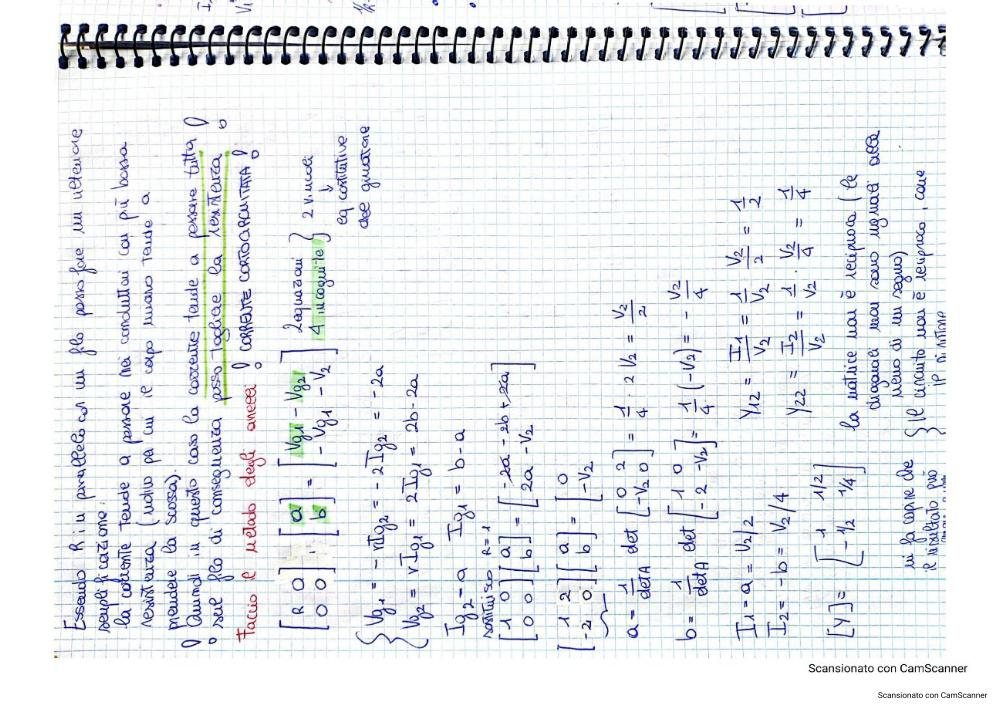 Essendo R in parallelo con un filo posso fare un ulteriore
semplificazione.
la corrente tende a passare nei conduttori con più bassa
resistenza (motivo per cui il corpo umano tende a
prendere la scossa).
Quindi in questo caso la corrente tende a passare tutta
sul filo di conseguenza posso togliere la resistenza
! CORRENTE CORTOCIRCUITATA !
Faccio il metodo degli anelli
[R 0
0 0] · [a
b] = [Vg1 - Vg2
- Vg1 - V2]
2 equazioni
4 incognite } 2 vincoli
↓
eq costitutive
del giratore
{ Vg1 = - rIg2 = - 2Ig2 = -2a
Vg2 = rIg1 = 2Ig1 = 2b - 2a
Ig2 = a Ig1 = b - a
sostituisco R = 1
[1 0
0 0] [a
b] = [-2a - 2b + 2a
2a - V2]
[1 2
-2 0] [a
b] = [0
-V2]
a = 1/detA det [0 2
-V2 0] = 1/4 · 2 V2 = V2/2
b = 1/detA det [1 0
-2 -V2] = 1/4 (-V2) = - V2/4
I1 = a = V2/2
I2 = -b = V2/4
Y12 = I1/V2 = 1/V2 V2/2 = 1/2
Y22 = I2/V2 = 1/V2 · V2/4 = 1/4
[Y] = [1 1/2
-1/2 1/4]
la matrice non è reciproca (le
diagonali non sono uguali
meno di un segno)
mi fa capire che
il risultato può
{ il circuito non è reciproco, come